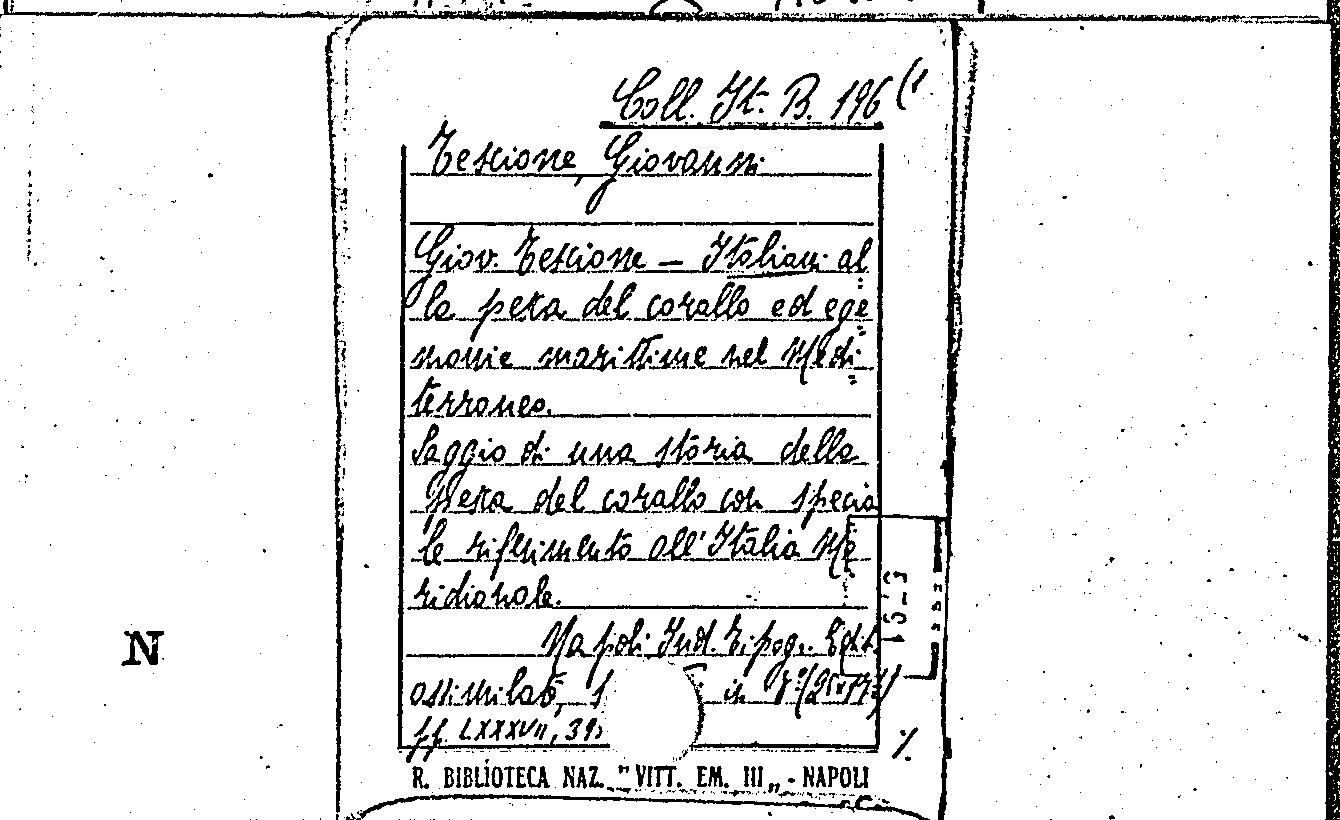 Coll. It. B. 196 (1
Tescione, Giovanni
Giov. Tescione — Italiani al
la pesca del corallo ed ege
monie marittime nel Medi
terraneo.
Saggio di una storia della
pesca del corallo con specia
le riferimento all'Italia Me
ridionale.
Napoli Ind. Tipog. Edit.
assimilate, 1 in 8° (25x17½)
pp. LXXXVII, 39
N
R. BIBLIOTECA NAZ. "VITT. EM. III„ - NAPOLI